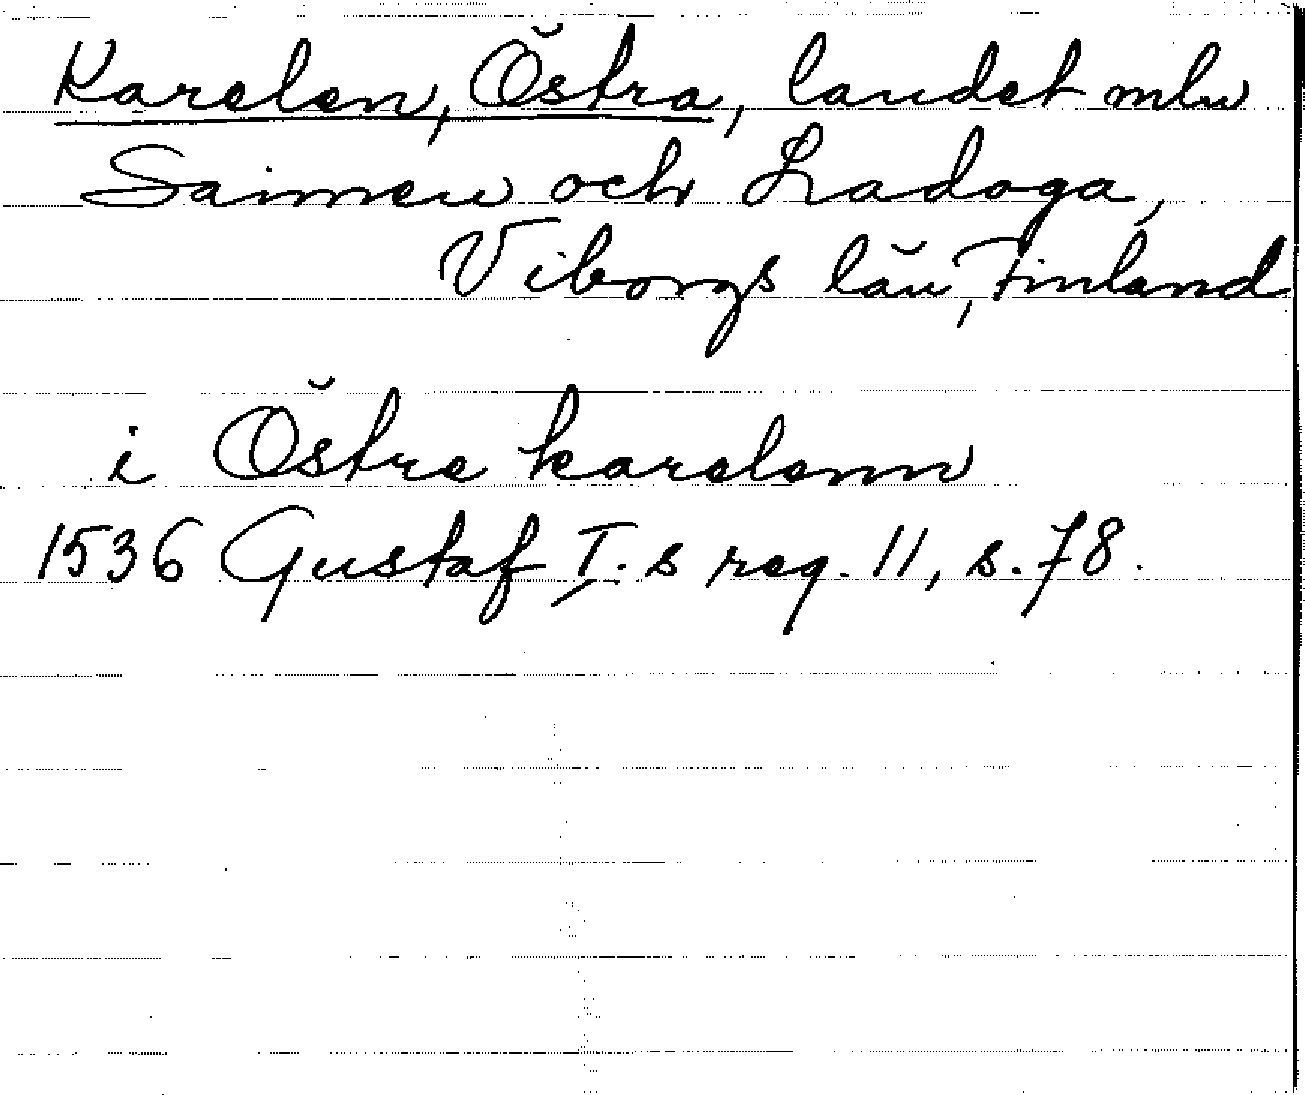 Karelen, Östra, landet mln
Saimen och Ladoga,
Viborgs län, Finland
i Östre karelenn
1536 Gustaf I.s reg. 11, s. 78.